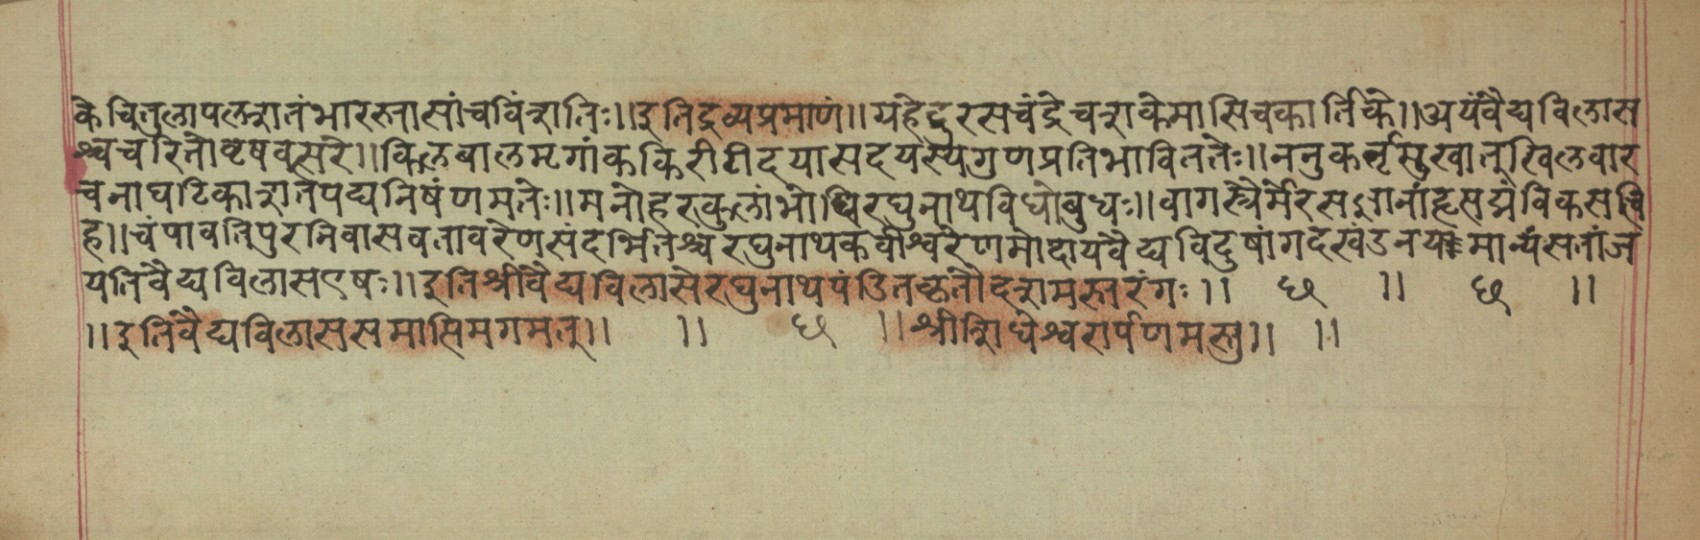 केचित्तुलापलशतंभारस्तासांचविंशतिः॥इतिद्रव्यप्रमाणं॥ग्रहेंदुरसचंद्रेचशाकेमासिचकार्तिके॥अयंवैद्यविलास
श्चचरितोवृषवत्सरे॥किलबालमृगांककिरीटीदयासदयस्यगुणप्रतिभाविततेः॥ननुकर्तृसुखात्खिलवार
चनाघटिकाशतपद्यनिषंणमतेः॥मनोहरकुलांभोधिरघुनाथविधोबुधः॥वागस्त्यै
ह॥चंपावतिपुरनिवासवतावरेणसंदर्भितश्चरघुनाथकवीश्वरेणमोदायवैद्यविदुषांगदखंडनयमान्यंसतांज
यतिवैद्यविलासएषः॥इतिश्रीवैद्यविलासेरघुनाथपंडितकृतौदशमस्तरंगः॥ छ ॥ छ ॥
॥इतिवैद्यविलाससमाप्तिमगमत्॥ ॥ छ ॥श्रीसिधेश्वरार्पणमस्तु॥ ॥